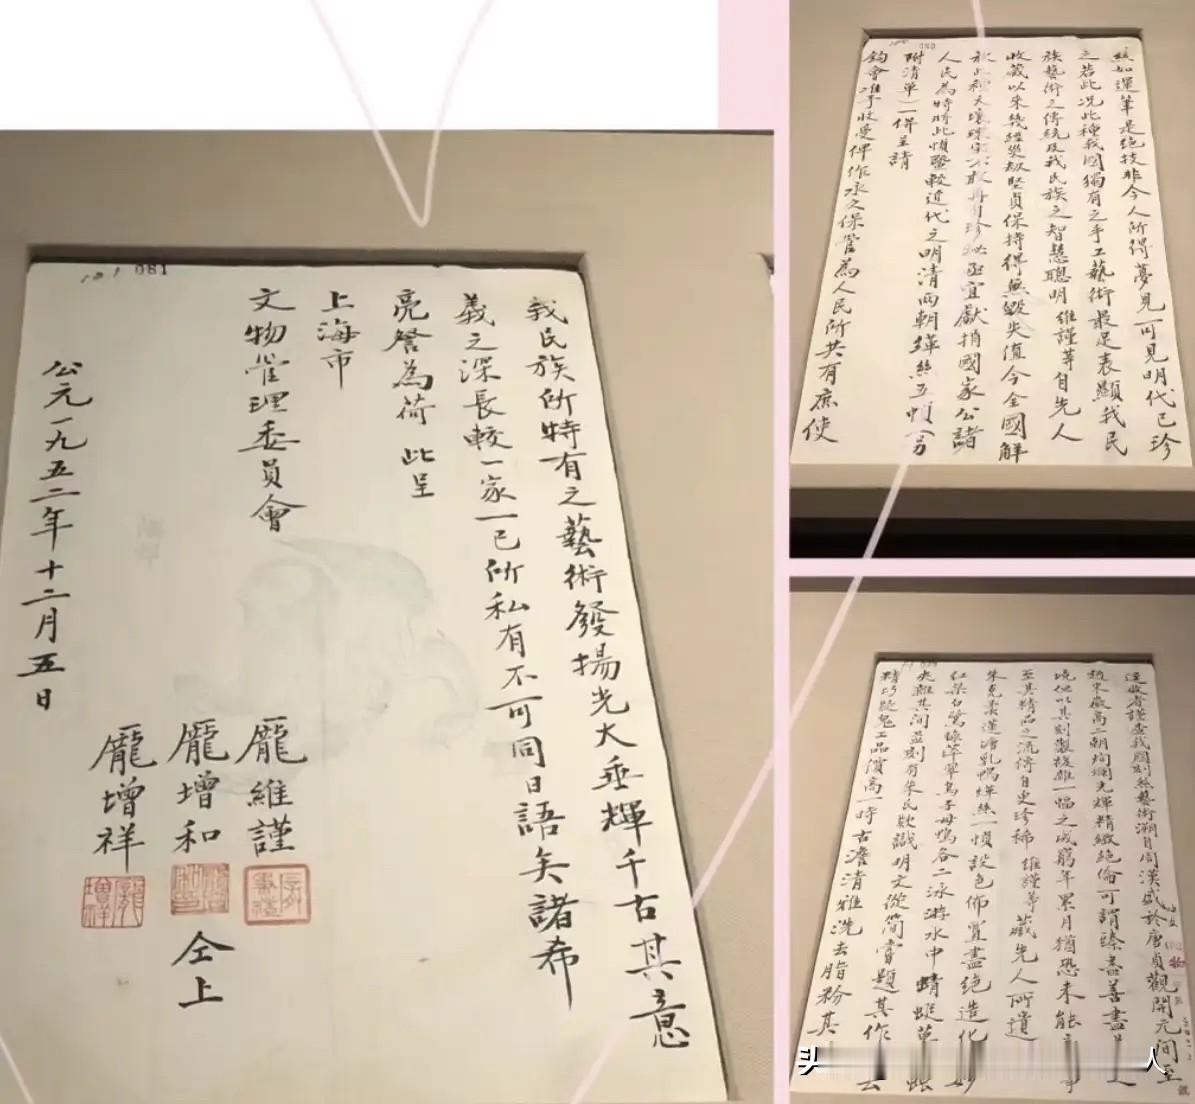 逕啟者謹查我國刻絲藝術溯自周漢盛於唐貞觀開元間至
趙宋徽高二朝絢爛光輝精緻絕倫可謂臻盡善盡
境但以其刻製複雜一幅之成窮年累月猶恐未能
至其精品之流傳自更珍稀 維謹等藏先人所遺
朱克柔蓮塘乳鴨緙絲一幀設色佈置盡絕造化
紅蕖白鷺綠萍翠鳥子母鴨各二泳游水中蜻蜓草
夾雜其間並刻有朱氏款識明文從簡嘗題其作
精巧疑鬼工品價高一時古澹清雅洗去脂粉其
絲如運筆是絕技非今人所得夢見可見明代已珍
之若此況此種我國獨有之手工藝術最足表顯我民
族藝術之傳統及我民族之智慧聰明維謹等自先人
收藏以來幾經災劫堅貞保持得無毀失值今全國解
放此種天壤瑰寶不敢再自珍秘亟宜獻捐國家公諸
人民為特將此幀暨較近代之明清兩朝緙絲五幀(另
附清單)一併呈請
鈞會准予收受俾作永久保管為人民所共有庶使
081
我民族所特有之藝術發揚光大垂輝千古其意
義之深長較一家一己所私有不可同日語矣諸希
亮詧為荷 此呈
上海市
文物管理委員會
龐維謹
龐增和 仝上
龐增祥
公元一九五二年十二月五日